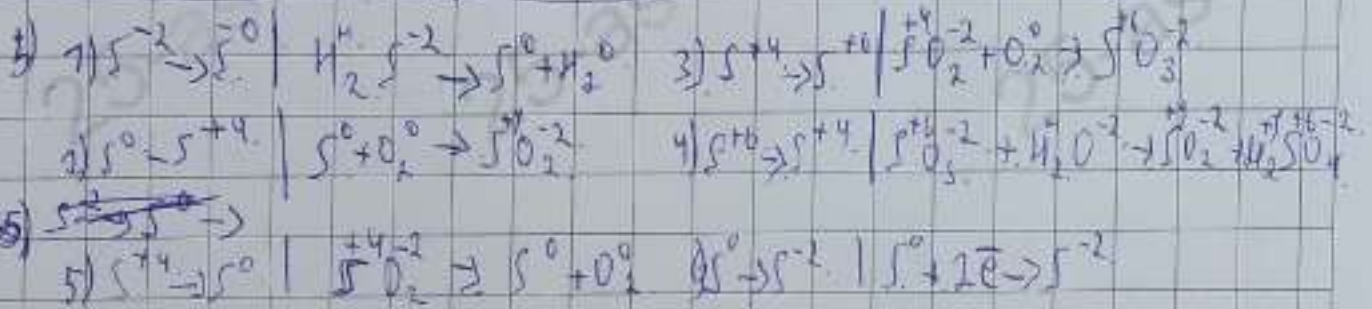 1) S⁻² → S⁰ | H₂⁺S⁻² → S⁰ + H₂⁰ 3) S⁺⁴ → S⁺⁶ | S⁺⁴O₂⁻² + O₂⁰ → S⁺⁶O₃⁻²
2) S⁰ – S⁺⁴ | S⁰ + O₂⁰ → S⁺⁴O₂⁻² 4) S⁺⁶ → S⁺⁴ | S⁺⁶O₃⁻² + H₂⁺O⁻² → S⁺⁴O₂⁻² + H₂⁺¹S⁺⁶O₄⁻²
5) →
5) S⁺⁴ → S⁰ | S⁺⁴O₂⁻² → S⁰ + O₂⁰ 6) S⁰ → S⁻² | S⁰ + 2ē → S⁻²